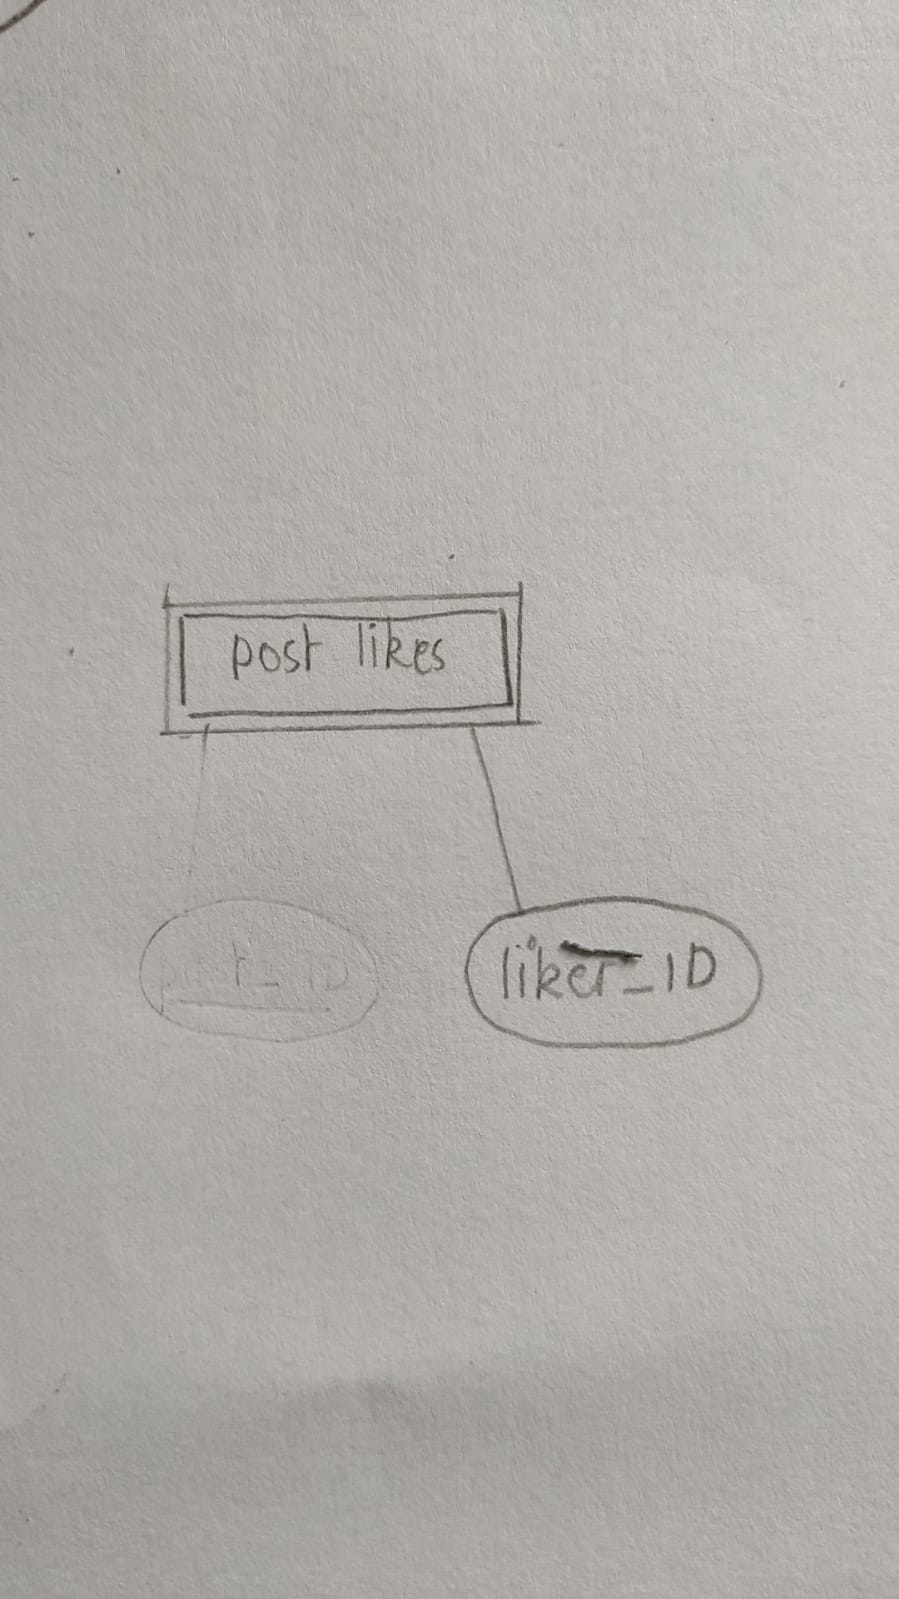 post likes
post_ID
liker_ID